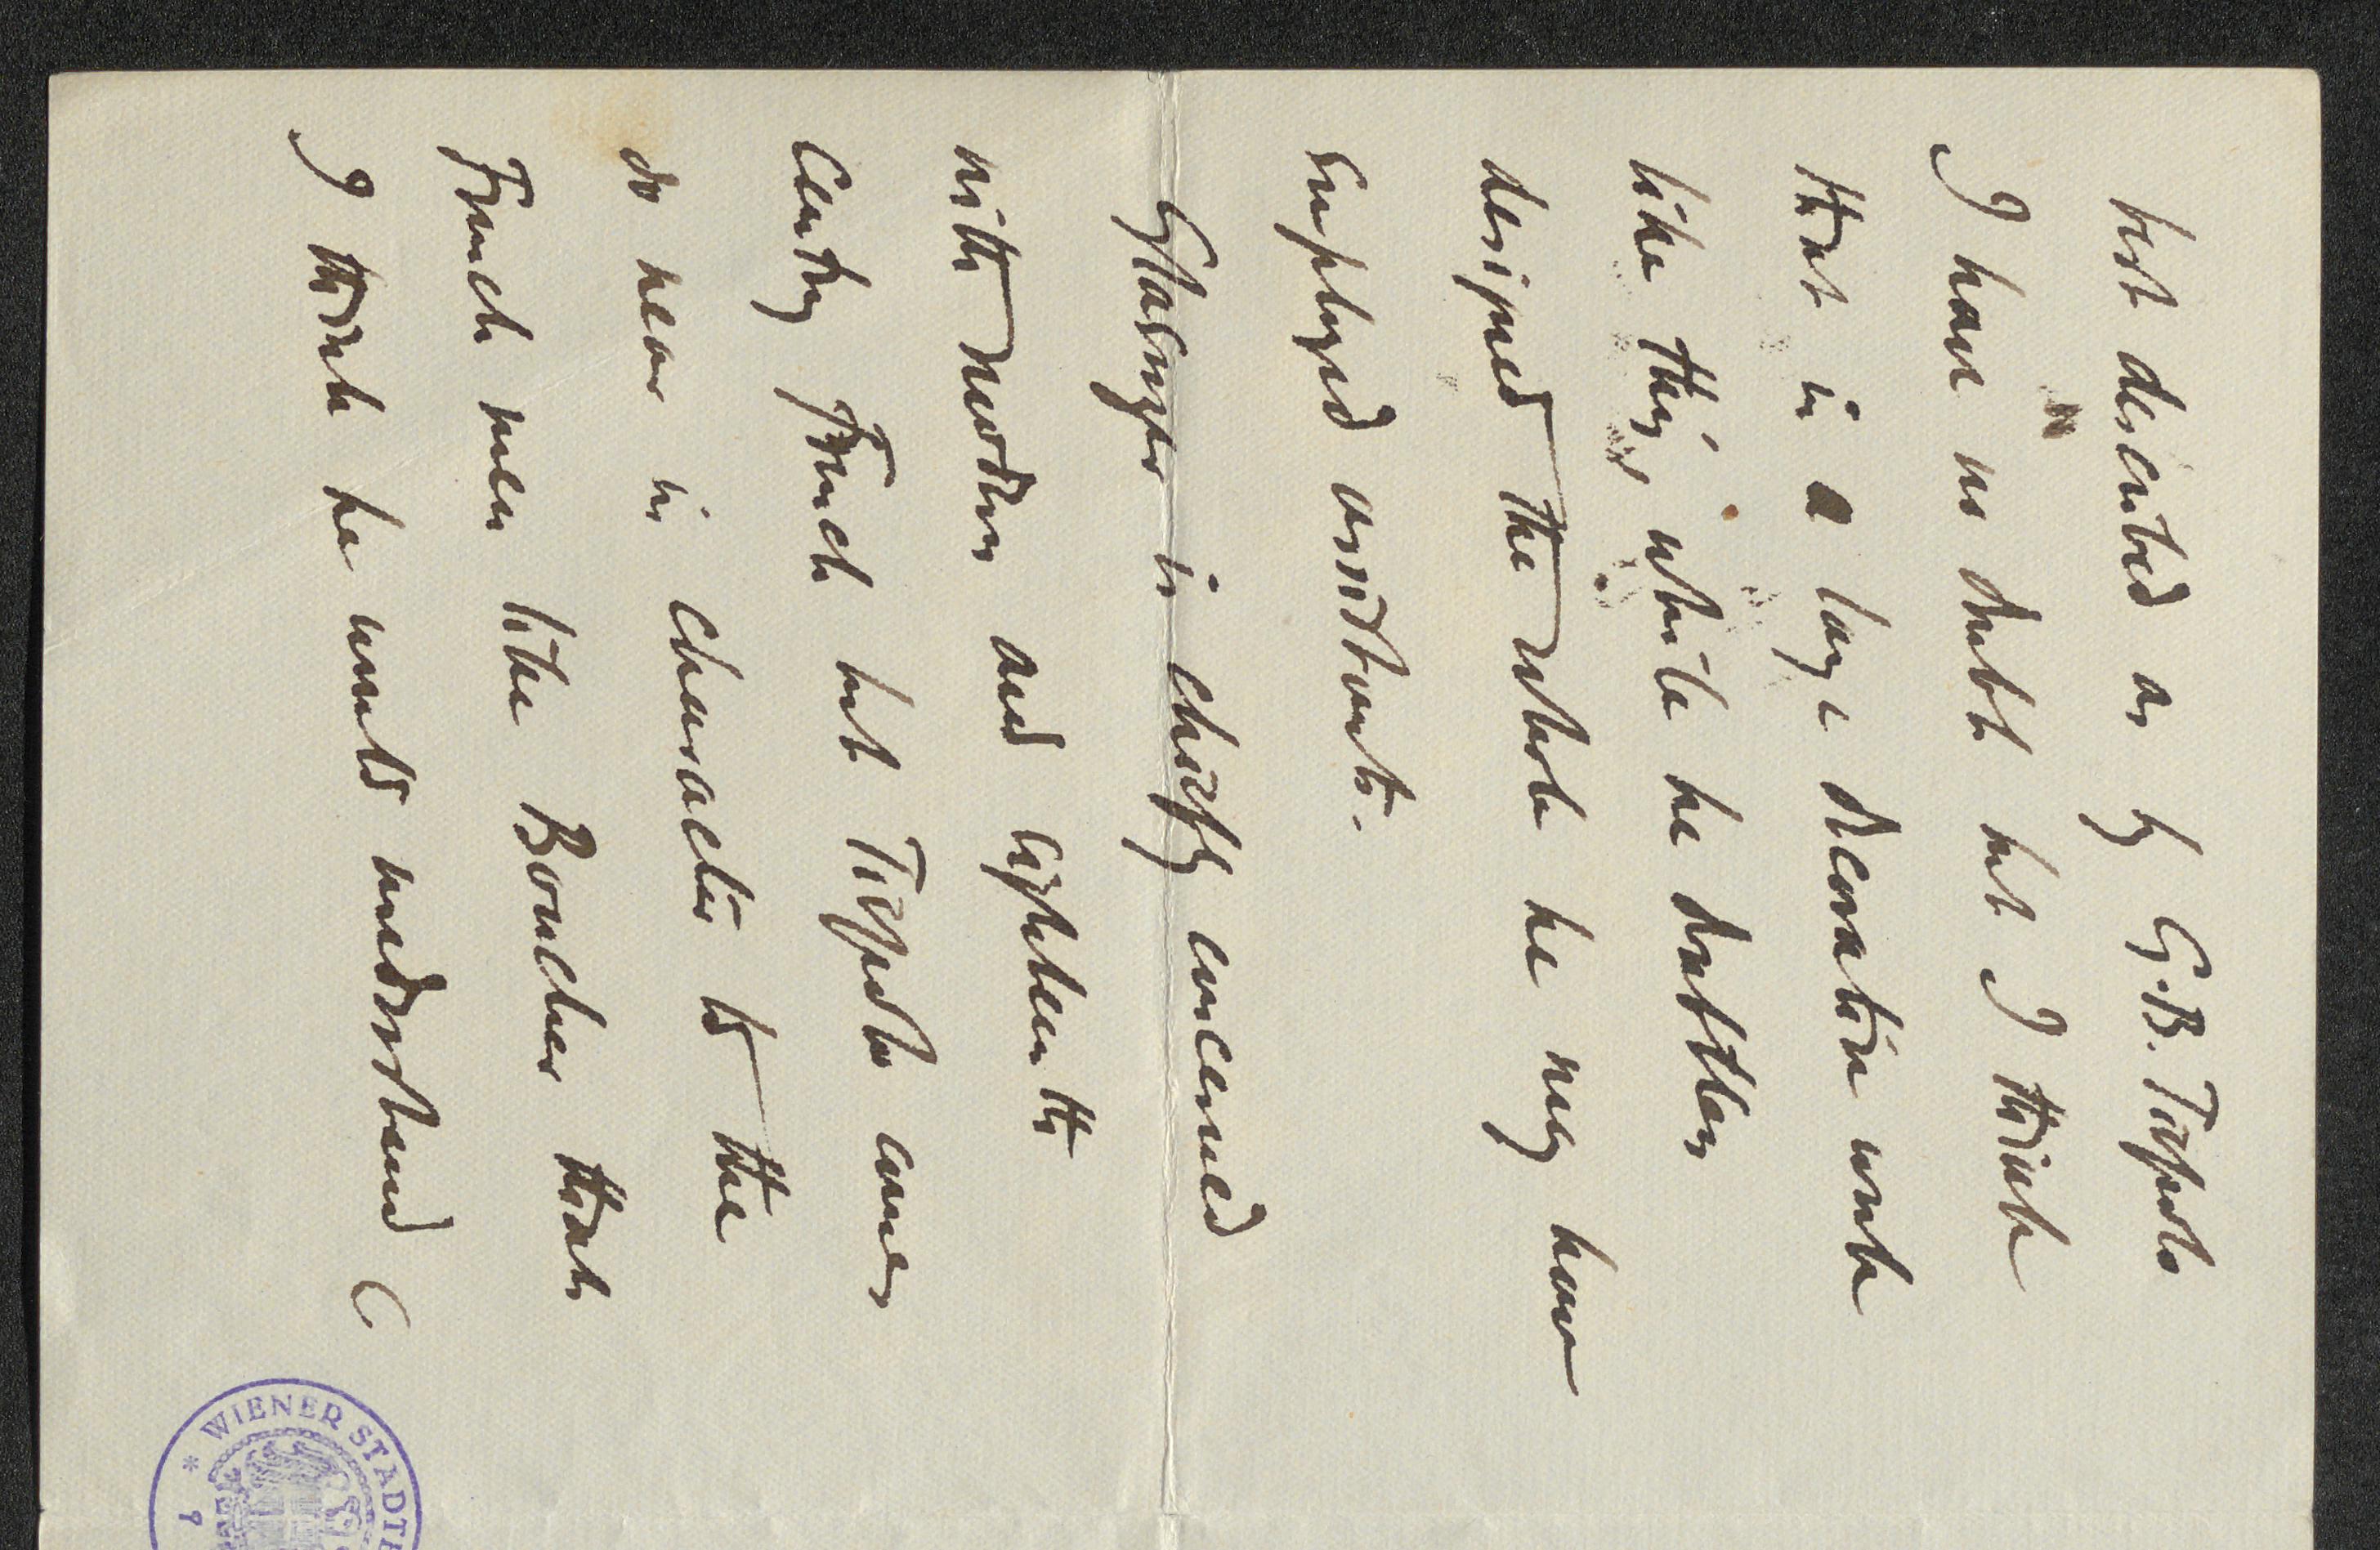 best described as by G.B. Tiepolo
I have no doubt but I think
that in a large decorative work
like this, while he doubtless
designed the whole he may have
employed assistants.
Glasnyer is chiefly concerned
with modern and eighteenth
Century French but Tiepolo comes
so near in character to the
French men like Boucher that
I think he would understand
WIENER STADTB